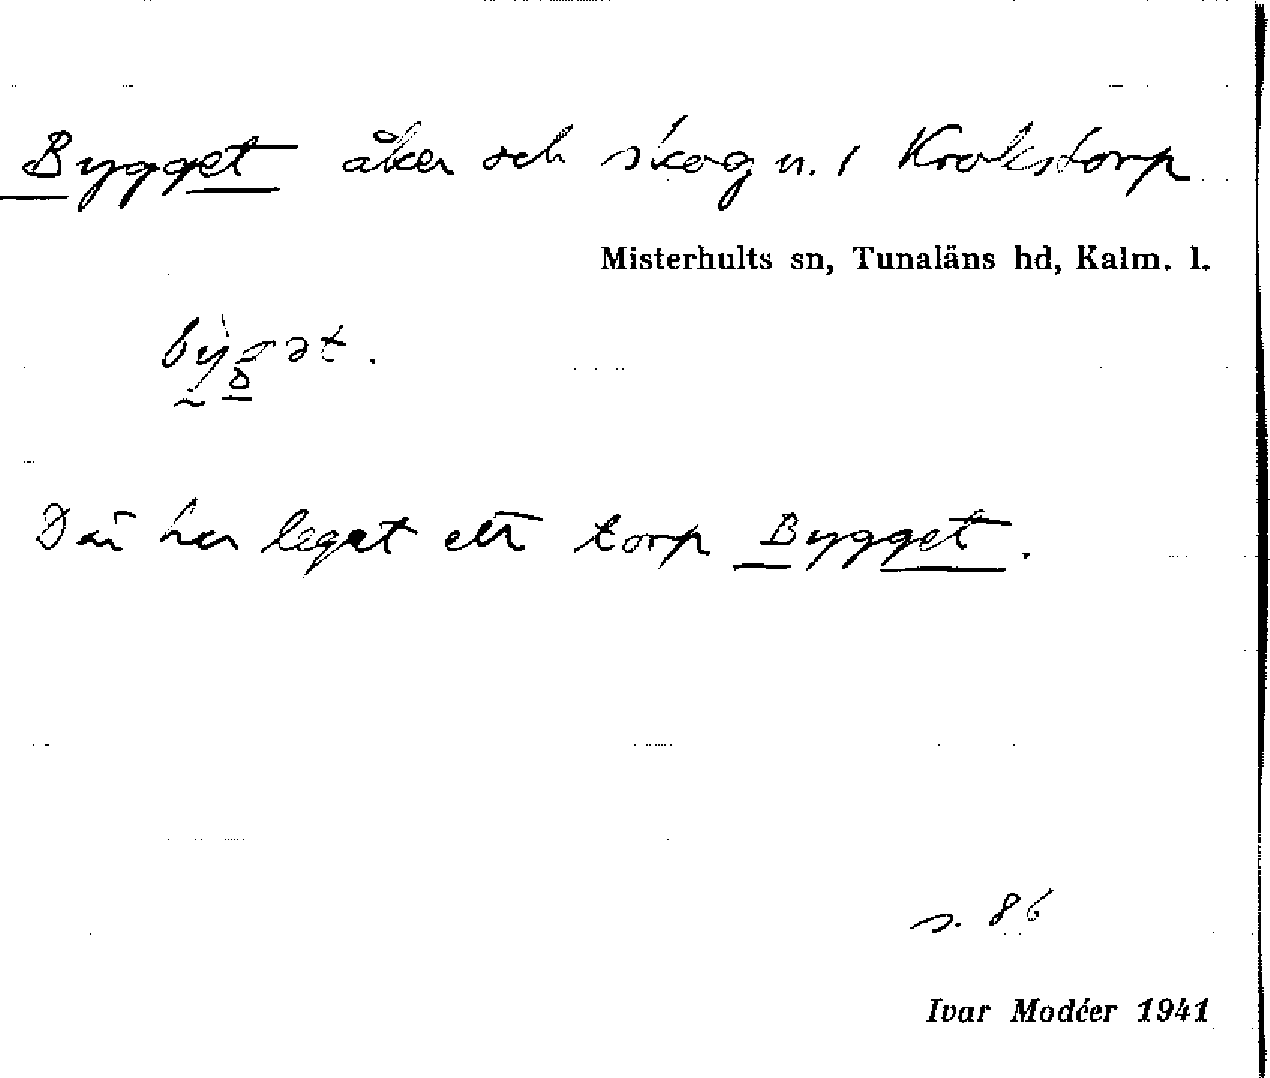 Bygget åker och skog u. / Krokstorp
Misterhults sn, Tunaläns hd, Kalm. l.
Där har legat ett torp Bygget.
s. 86
Ivar Modéer 1941